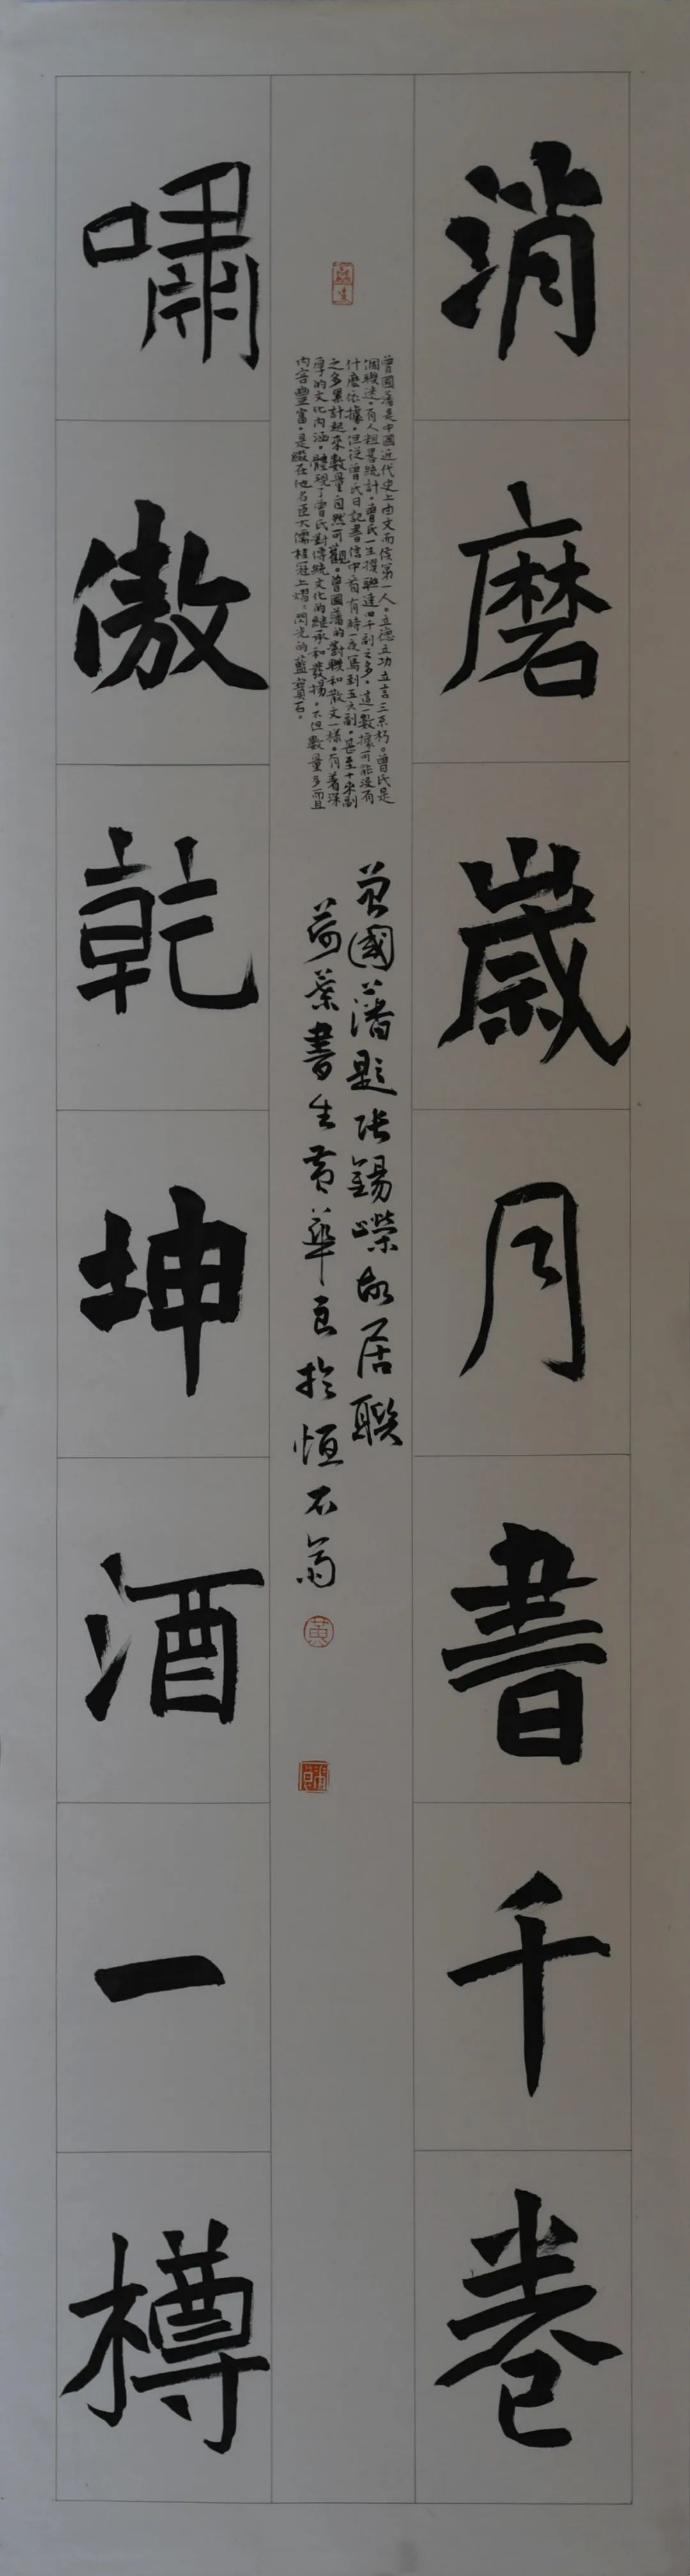 消磨歲月書千卷
嘯傲乾坤酒一樽
曾國藩是中國近代史上由文而侯第一人。立德立功立言三不朽。曾氏是
個聯迷。有人粗畧統計。曾氏一生撰聯達四千副之多。這一數據可能没有
什麽依據。但從曾氏日記書信中看有時一夜寫到五六副。甚至十來副
之多累計起來數量自然可觀。曾國藩的對聯和散文一樣。有着深
厚的文化内涵。體現了曾氏對傳統文化的繼承和發揚。不但數量多而且
内容豐富。是綴在他名臣大儒桂冠上熠熠閃光的藍寶石。
曾國藩題張錫嶸故居聯
荷葉書生黄華良於恒石斋
黄